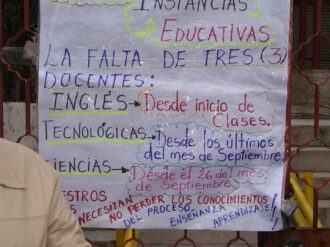 INSTANCIAS
EDUCATIVAS
LA FALTA DE TRES (3)
DOCENTES:
INGLÉS → Desde inicio de
Clases.
TECNOLÓGICAS → Desde los últimos
del mes de Septiembre.
CIENCIAS → Desde el 26 del mes
de Septiembre.
NECESITAN NO PERDER LOS CONOCIMIENTOS
DEL PROCESO ENSEÑANZA APRENDIZAJE!